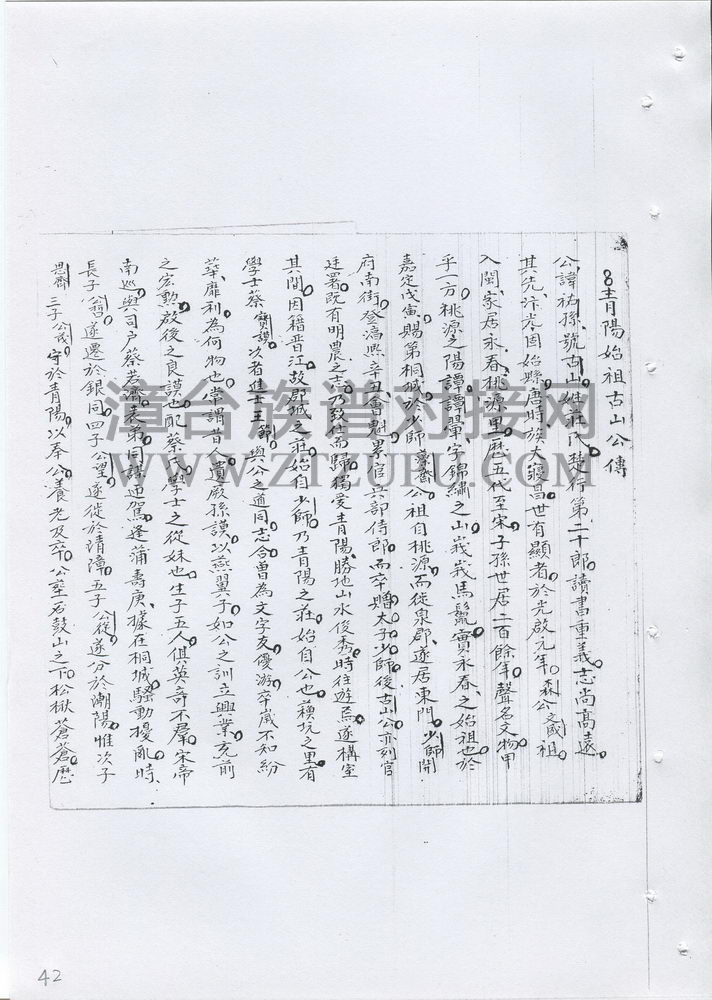 8青陽始祖古山公傳
公諱祐孫。號古山。姓莊氏。楚行第二十郎。讀書重義。志尚高遠。
其先汴光固始縣。唐時族大寢昌。世有顯者。於光啟元年。森公文盛祖
入閩。家居永春、桃源里。歷五代至宋。子孫世居二百餘年。聲名文物甲
乎一方。桃源之陽。譚譚翬字錦繡之山。峩峩馬鬣。實永春、之始祖也。於
嘉定戊寅。賜第桐城。於少師 公祖自桃源。而徙泉郡、遂居東門。少師開
府南街。登 熙辛丑會魁。累官兵部侍郎。而卒。贈太子少師。後古山公亦列官
廷署。既有明農之志。乃致仕而歸。獨愛青陽。勝地山水後秀。時往遊焉。遂構室
其間。因籍晋江。故郡城之莊。始自少師。乃青陽之莊。始自公也。 坑之里有
學士蔡 次者進士王 與公之道同志合。曾為文字友。優游卒歲。不知紛
華、靡利為何物也。常謂昔人遺厥孫謨。以燕翼子。如公之訓立興業。充前
之宏勳。啟後之良謨也。配蔡氏。學士之從妹也。生子五人。俱英奇不羣。宋帝
南巡。與司戶蔡若濟。表弟同謀迎駕。逢蒲壽庚。據在桐城。騷動擾亂時、
長子公哲。遂遷於銀同。四子公望。遂徙於清漳。五子公從。遂分於潮陽。惟次子
思齊 三子公茂。守於青陽。以奉公養老。及卒。公塋石鼓山之下。松楸蒼蒼。歷
漳台族谱对接网
WWW.ZTZUPU.COM
42